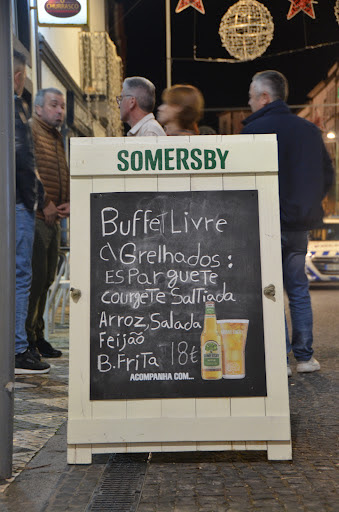 CHURRASCO
SOMERSBY
BuffeT Livre
c\ Grelhados:
ESParguete
courgete Saltiada
Arroz, Salada
Feijão
B. Frita 18€
ACOMPANHA COM...